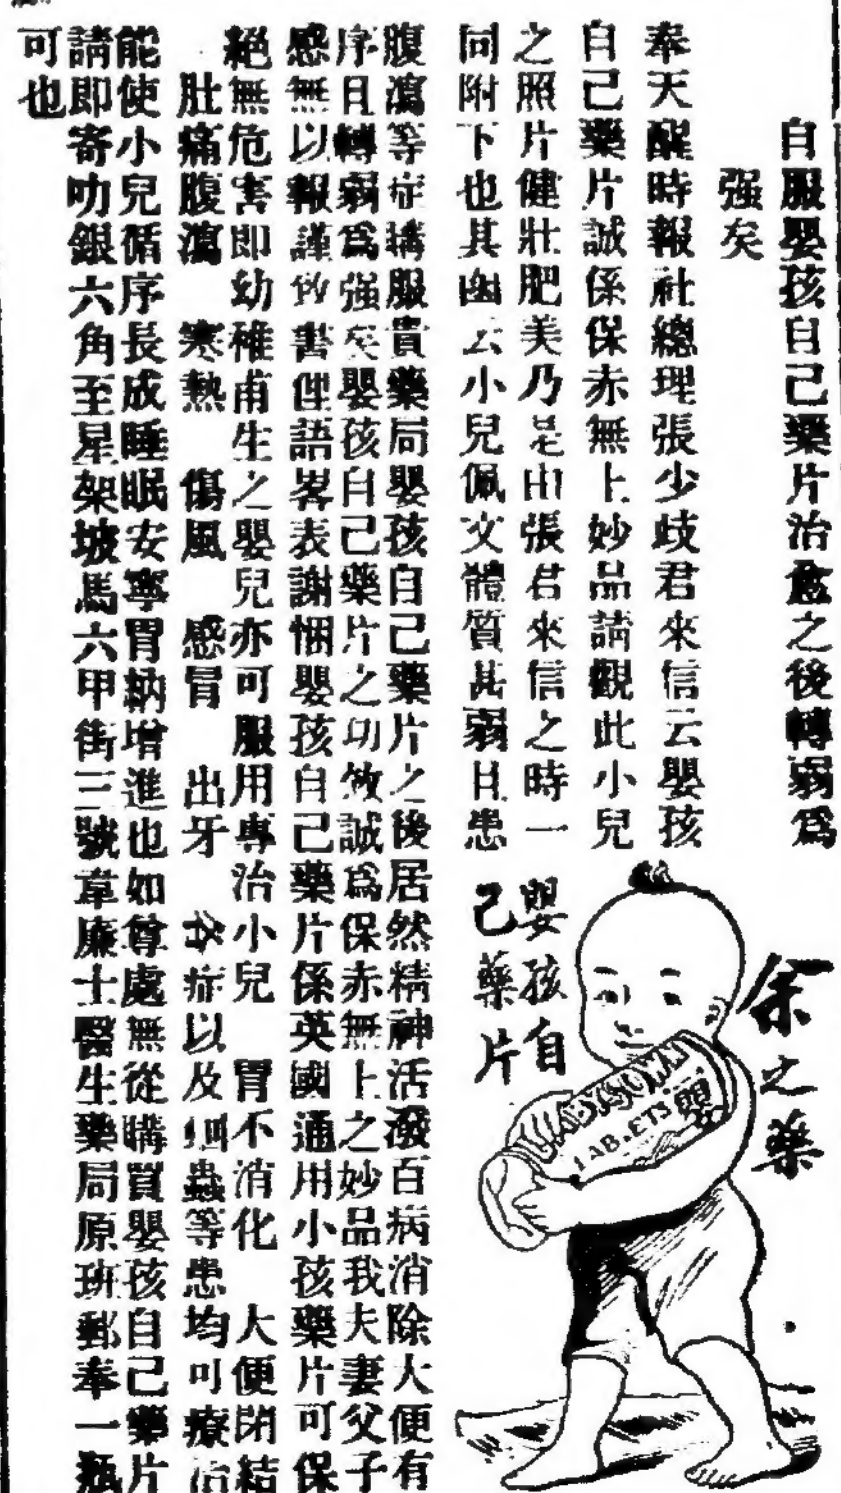 自服嬰孩自己藥片治愈之後轉弱爲
强矣
奉天醒時報社總理張少歧君來信云嬰孩
自己藥片誠係保赤無上妙品請觀此小兒
之照片健壯肥美乃是由張君來信之時一
同附下也其函云小兒佩文體質甚弱且患
腹瀉等症購服貴藥局嬰孩自己藥片之後居然精神活潑百病消除大便有
序且轉弱爲强矣嬰孩自己藥片之功效誠爲保赤無上之妙品我夫妻父子
感無以報謹修書俚語畧表謝悃嬰孩自己藥片係英國通用小孩藥片可保
絕無危害即幼稚甫生之嬰兒亦可服用專治小兒 胃不消化 大便閉結
肚痛腹瀉 寒熱 傷風 感冒 出牙 各症以及蛔蟲等患均可療治
能使小兒循序長成睡眠安寧胃納增進也如尊處無從購買嬰孩自己藥片
請即寄叻銀六角至星架坡馬六甲街三號韋廉士醫生藥局原班郵奉一瓶
可也
余之藥
嬰孩自
己藥片
BABY'S OWN
TABLETS
嬰